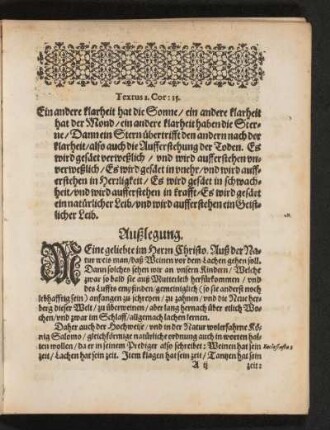 Textus 1. Cor: 15.
Ein andere klarheit hat die Sonne / ein andere klarheit
hat der Mond / ein andere klarheit haben die Ster-
ne / Dann ein Stern übertrifft den andern nach der
klarheit / also auch die Aufferstehung der Toden. Es
wird gesäet verweßlich / vnd wird aufferstehen vn-
verweßlich / Es wird gesäet in vnehr / vnd wird auff-
erstehen in Herrligkeit / Es wird gesäet in schwach-
heit / vnd wird aufferstehen in krafft / Es wird gesäet
ein natürlicher Leib / vnd wird aufferstehen ein Geist-
licher Leib.
Außlegung.
MEine geliebte im Herrn Christo. Auß der Na-
tur weis man / daß Weinen vor dem Lachen gehen soll.
Dann solches sehen wir an vnsern Kindern / Welche
zwar so bald sie auß Mutterleib herfürkommen / vnd
des Luffts empfinden gemeiniglich (so sie anderst noch
lebhafftig sein) anfangen zu schreyen / zu zahnen / vnd die Neue her-
berg dieser Welt / zu beweinen / aber lang hernach über etlich Wo-
chen / vnd zwar im Schlaff / allgemach lachen lernen.
Daher auch der Hochweise / vnd in der Natur wolerfahrne Kö-
nig Salomo / gleichförmige natürliche ordnung auch in worten hal-
ten wollen / da er in seinem Prediger also schreibet: Weinen hat sein
zeit / Lachen hat sein zeit. Item klagen hat sein zeit / Tantzen hat sein
A ij zeit: